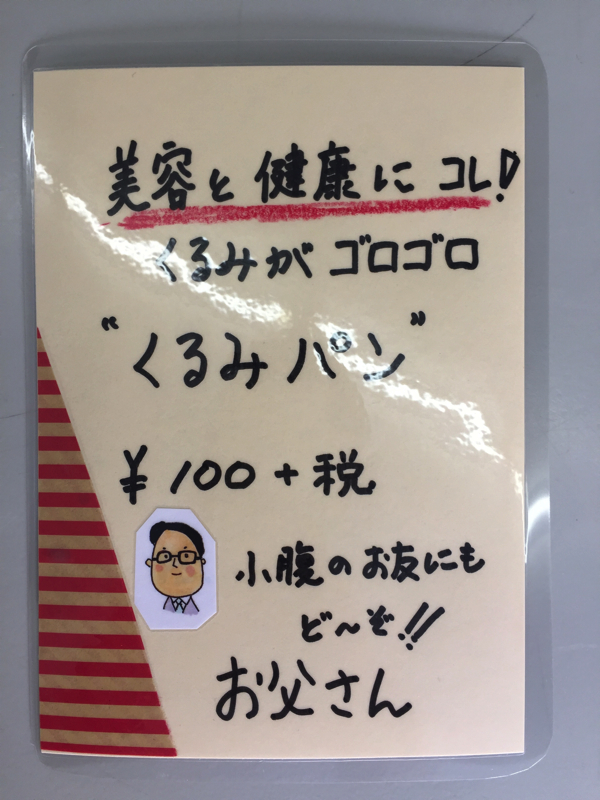 美容と健康にコレ!
くるみがゴロゴロ
“くるみパン”
¥100+税
小腹のお友にも
ど〜ぞ!!
お父さん